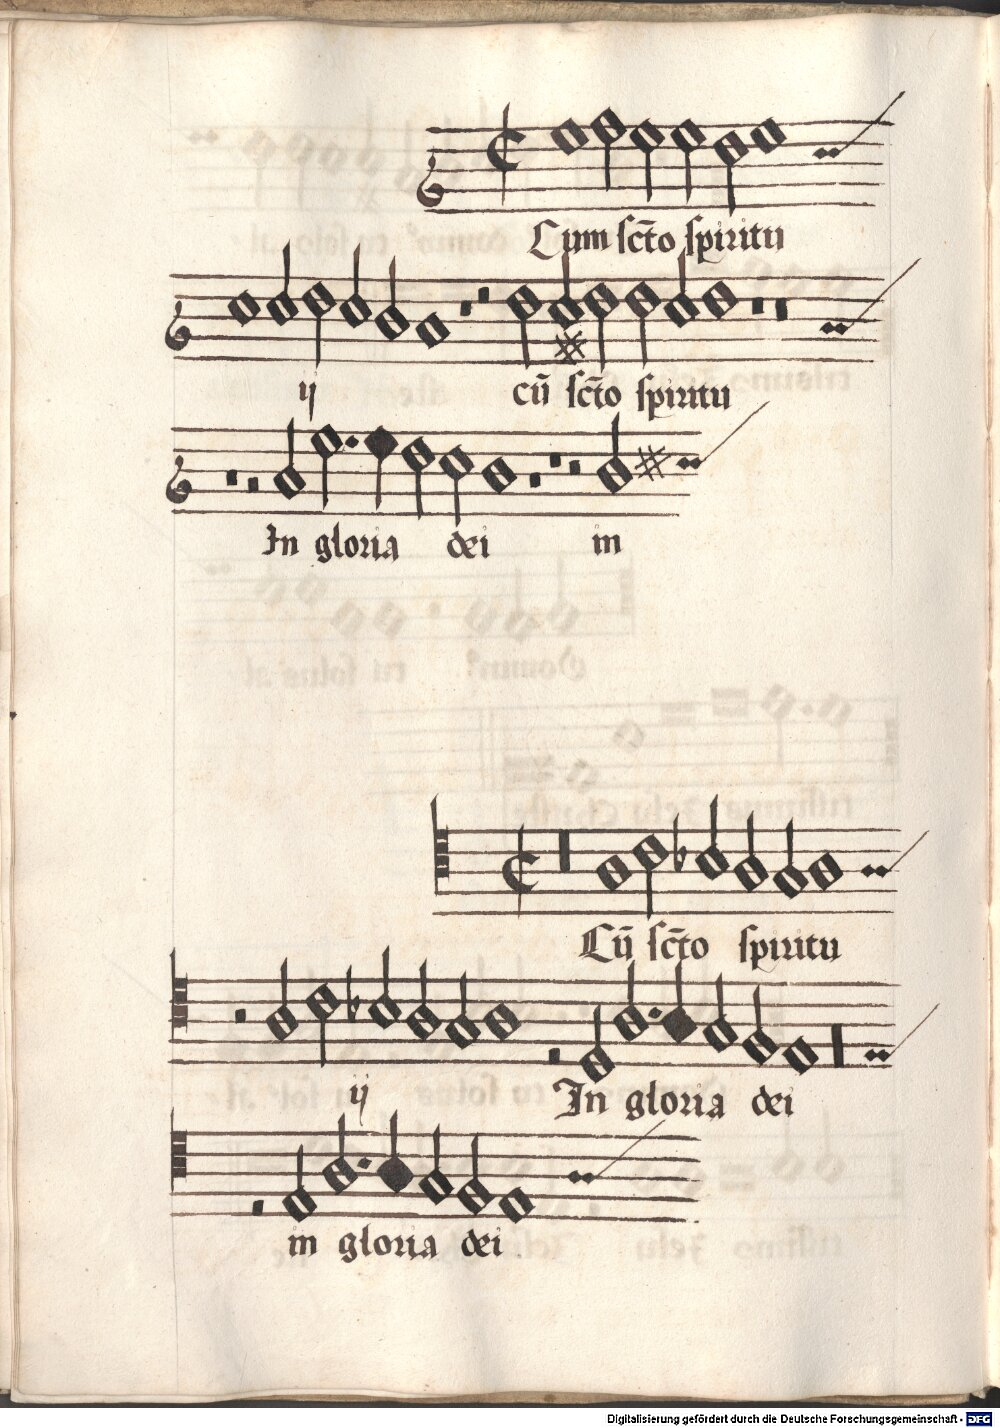 Cum sc̄to spiritu
ij cū sc̄to spiritu
In gloria dei in
Cū sc̄to spiritu
ij In gloria dei
in gloria dei
Digitalisierung gefördert durch die Deutsche Forschungsgemeinschaft - DFG